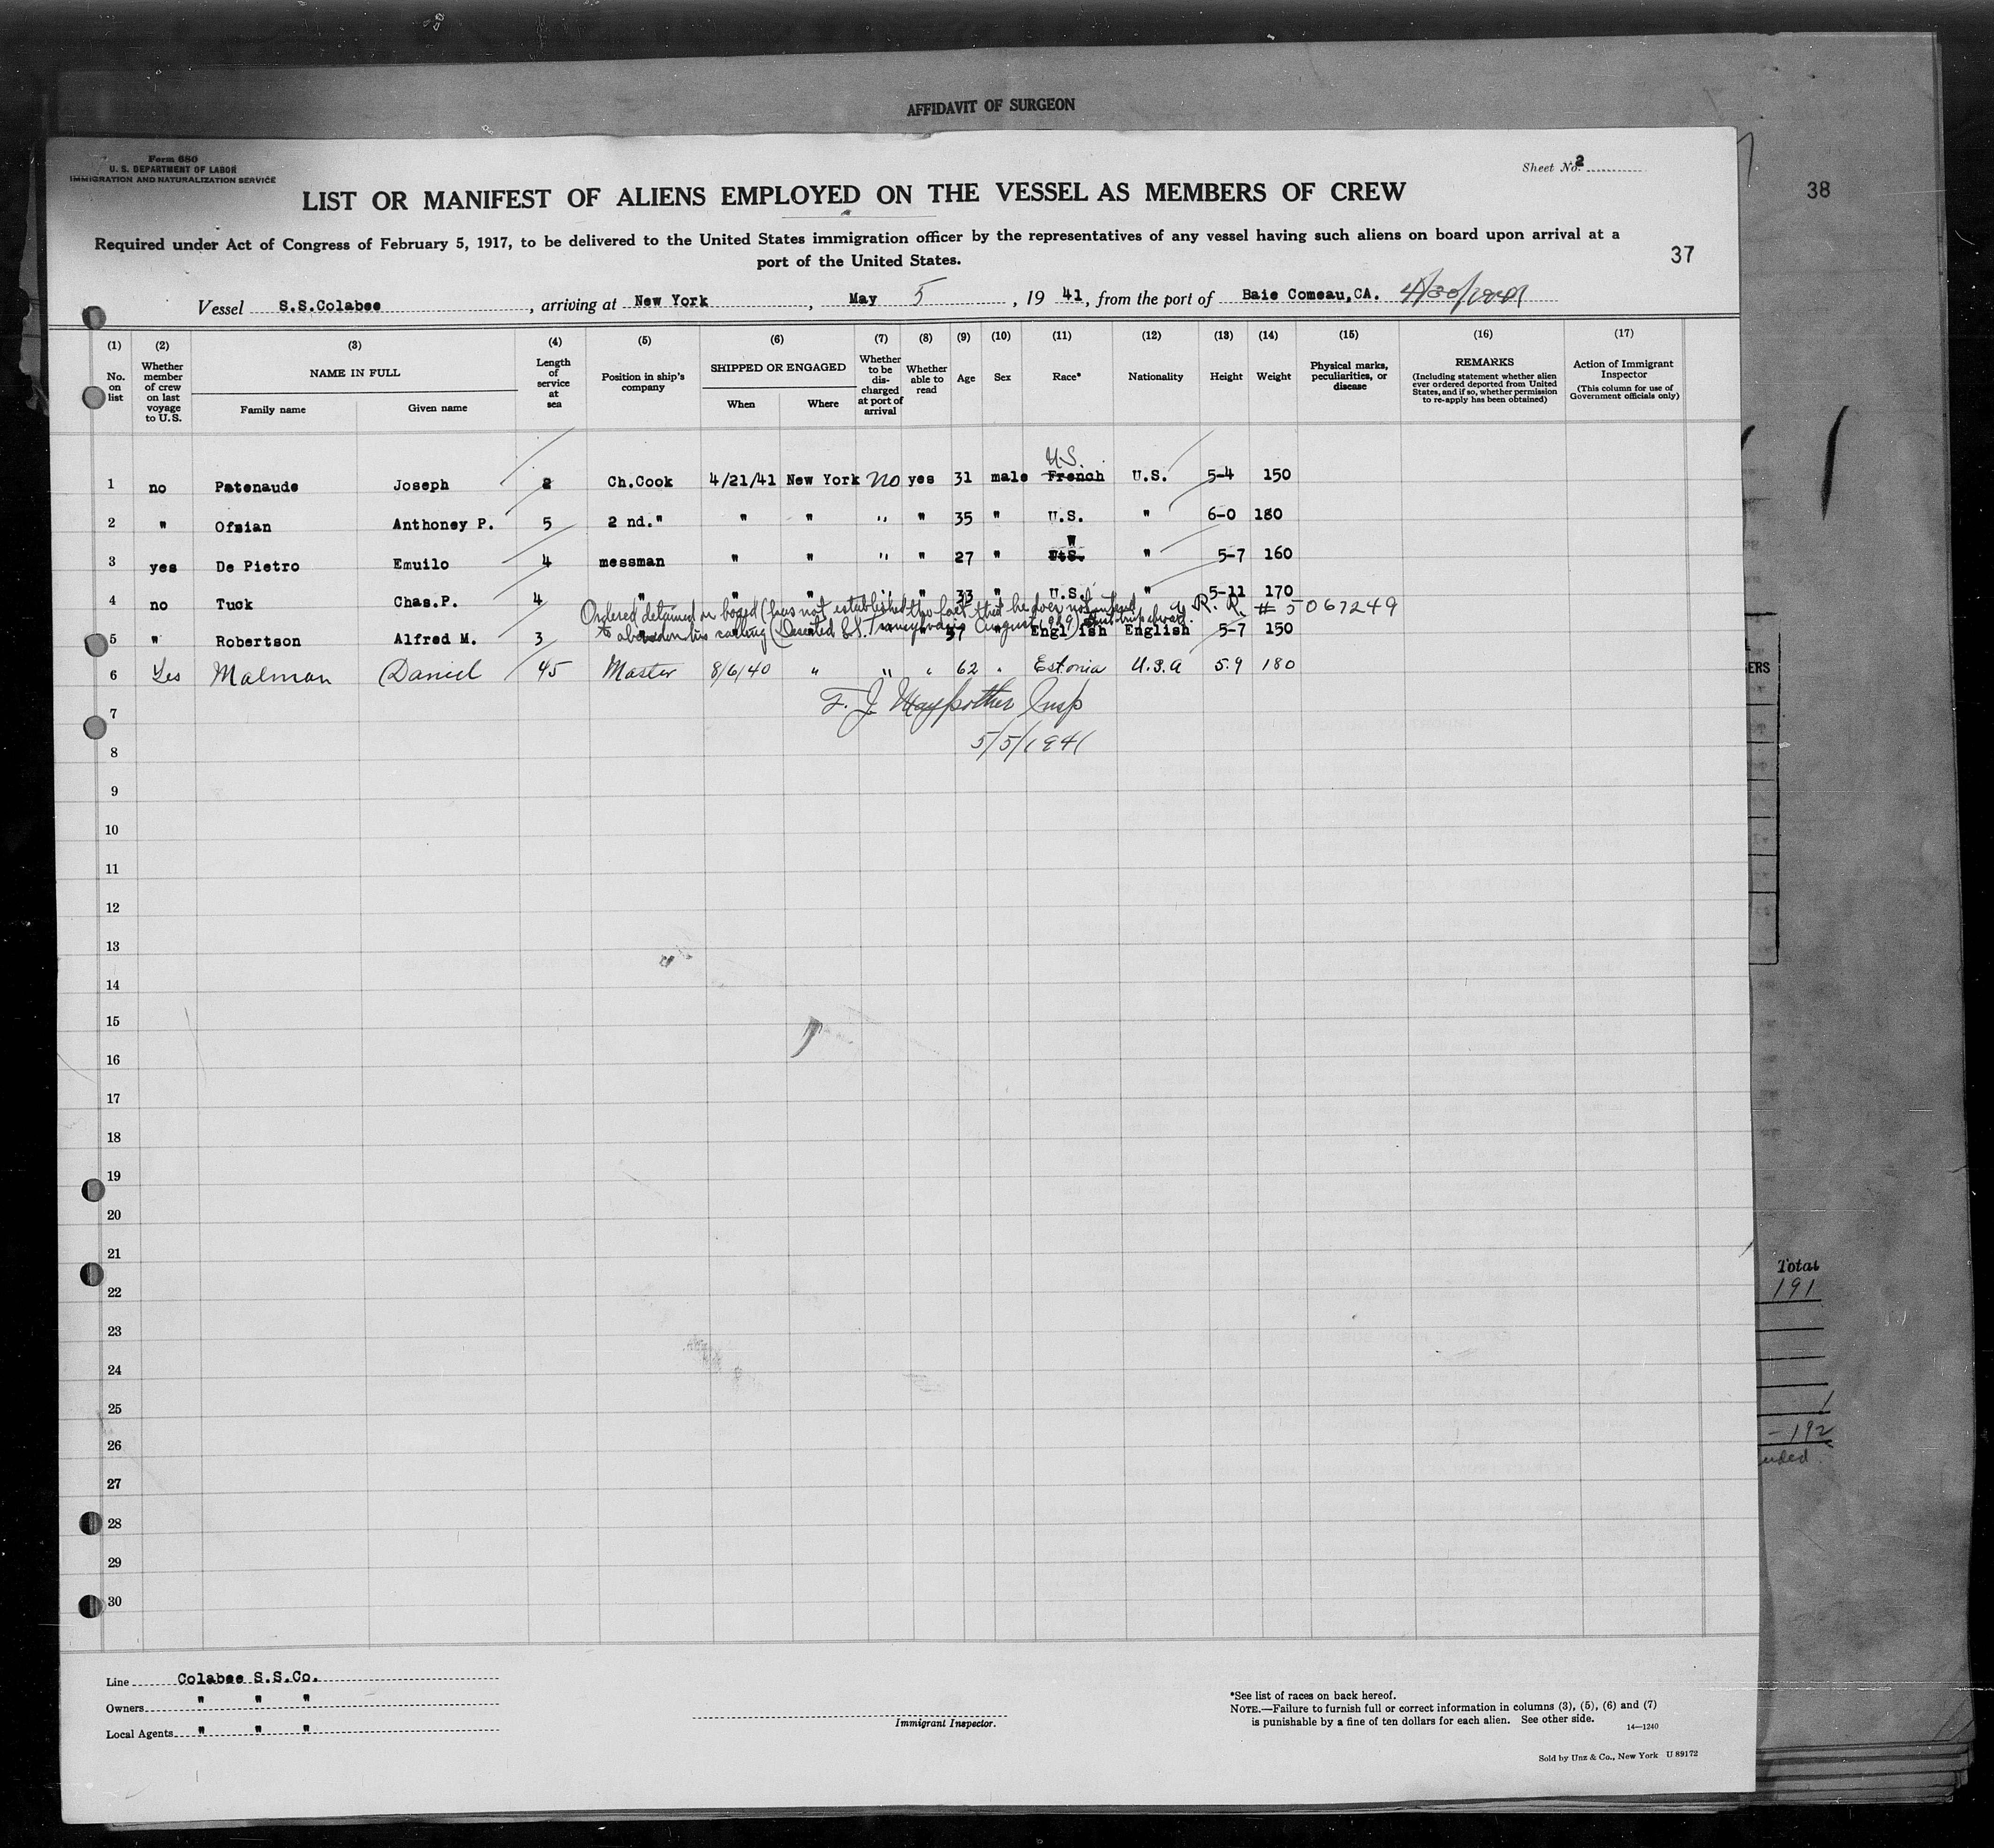 AFFIDAVIT OF SURGEON
38
Form 680
U. S. DEPARTMENT OF LABOR
IMMIGRATION AND NATURALIZATION SERVICE
Sheet No. 2
LIST OR MANIFEST OF ALIENS EMPLOYED ON THE VESSEL AS MEMBERS OF CREW
Required under Act of Congress of February 5, 1917, to be delivered to the United States immigration officer by the representatives of any vessel having such aliens on board upon arrival at a
port of the United States.
37
Vessel S.S.Colabee, arriving at New York, May 5, 19 41, from the port of Baie Comeau,CA. 4/30/1941
(1) (2) (3) (4) (5) (6) (7) (8) (9) (10) (11) (12) (13) (14) (15) (16) (17)
No. on list
Whether member of crew on last voyage to U.S.
NAME IN FULL
Family name
Given name
Length of service at sea
Position in ship's company
SHIPPED OR ENGAGED
When
Where
Whether to be dis-charged at port of arrival
Whether able to read
Age
Sex
Race*
Nationality
Height
Weight
Physical marks, peculiarities, or disease
REMARKS
(Including statement whether alien ever ordered deported from United States, and if so, whether permission to re-apply has been obtained)
Action of Immigrant Inspector
(This column for use of Government officials only)
U.S.
1 no Patenaude Joseph 2 Ch.Cook 4/21/41 New York no yes 31 male French U.S. 5-4 150
2 " Ofsian Anthoney P. 5 2 nd." " " " " 35 " U.S. " 6-0 180
3 yes De Pietro Emuilo 4 messman " " " " 27 " U.S. " " 5-7 160
4 no Tuck Chas.P. 4 " " " " " 33 " U.S. " 5-11 170
Ordered detained on board (has not established the fact that he does not intend A. R. R. # 5067249
to abandon his calling (Deserted S.S. Transylvania August 1929) first trip
5 " Robertson Alfred M. 3 " " " " " 37 " English English 5-7 150
6 Yes Malman Daniel 45 Master 8/6/40 " " " 62 " Estonia U.S.A 5.9 180
F. J. Maypother Insp
7
5/5/1941
8
9
10
11
12
13
14
15
16
17
18
19
20
21
22
23
24
25
26
27
28
29
30
Total
191
1
-192
Line Colabee S.S.Co.
Owners " " "
Local Agents " " "
Immigrant Inspector.
*See list of races on back hereof.
NOTE.—Failure to furnish full or correct information in columns (3), (5), (6) and (7)
is punishable by a fine of ten dollars for each alien. See other side.
14—1240
Sold by Unz & Co., New York U 89172